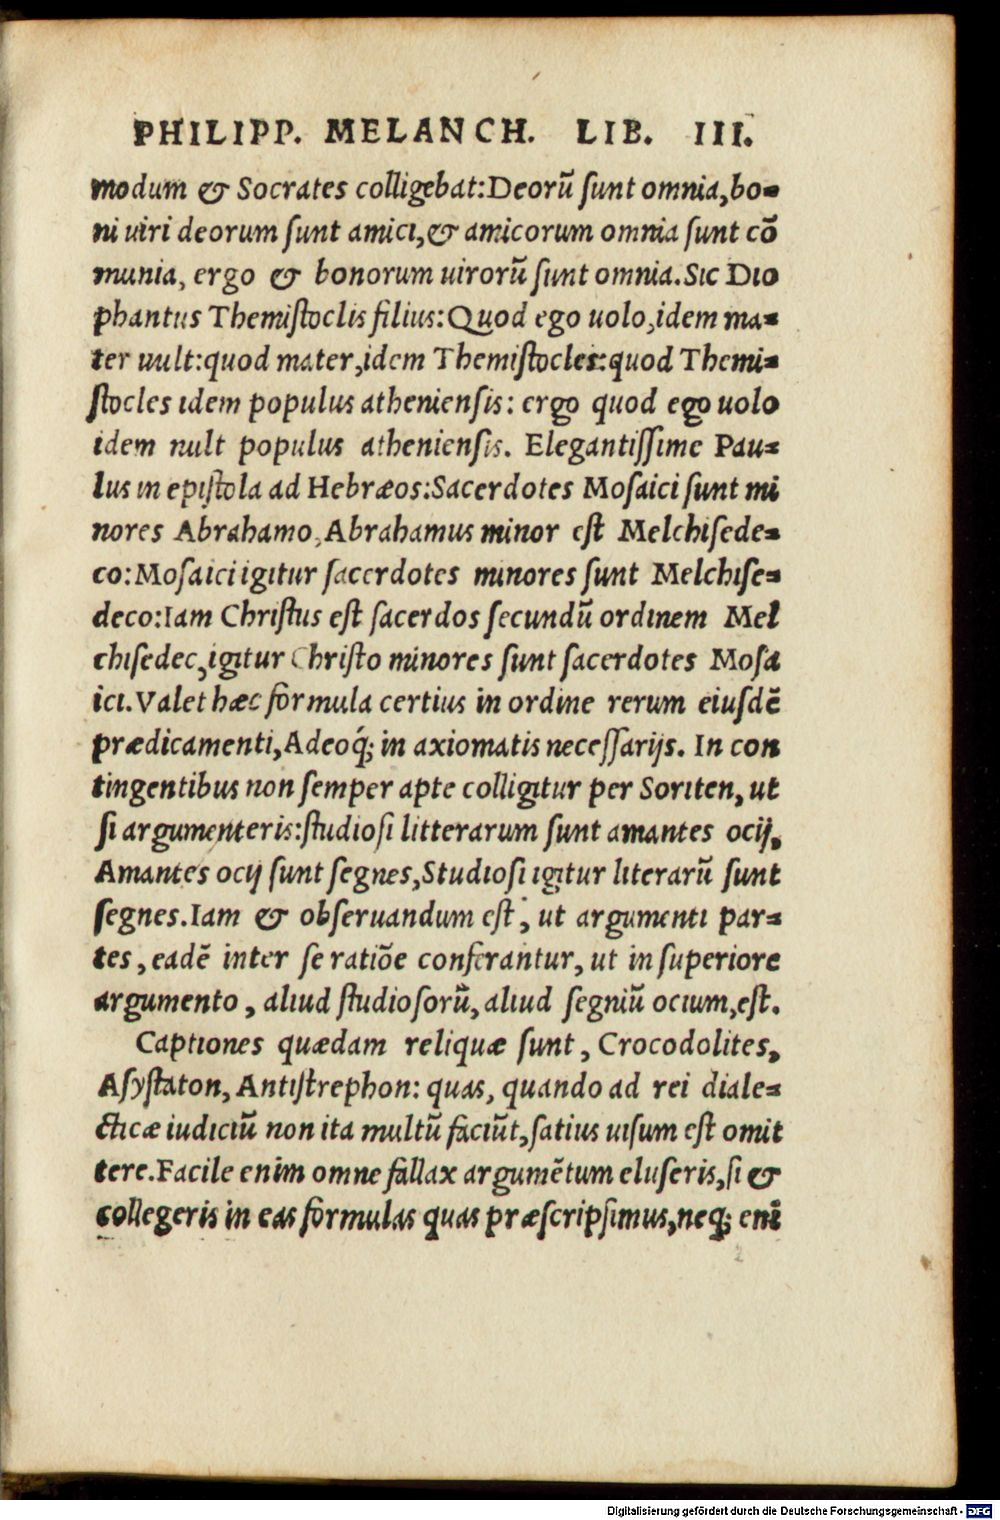 PHILIPP. MELANCH. LIB. III.
modum & Socrates colligebat:Deorū sunt omnia,bo-
ni uiri deorum sunt amici,& amicorum omnia sunt cō
munia, ergo & bonorum uirorū sunt omnia.Sic Dio
phantus Themistoclis filius:Quod ego uolo,idem ma-
ter uult:quod mater,idem Themistocles:quod Themi-
stocles idem populus atheniensis: ergo quod ego uolo
idem uult populus atheniensis. Elegantissime Pau-
lus in epistola ad Hebræos:Sacerdotes Mosaici sunt mi
nores Abrahamo,Abrahamus minor est Melchisede-
co:Mosaici igitur sacerdotes minores sunt Melchise-
deco:Iam Christus est sacerdos secundū ordinem Mel
chisedec,igitur Christo minores sunt sacerdotes Mosa
ici.Valet hæc formula certius in ordine rerum eiusdē
prædicamenti,Adeoq́; in axiomatis necessarijs. In con
tingentibus non semper apte colligitur per Soriten, ut
si argumenteris:studiosi litterarum sunt amantes ocij,
Amantes ocij sunt segnes,Studiosi igitur literarū sunt
segnes.Iam & obseruandum est, ut argumenti par-
tes, eadē inter se ratiōe conferantur, ut in superiore
argumento, aliud studiosorū, aliud segniū ocium,est.
Captiones quædam reliquæ sunt, Crocodolites,
Asystaton, Antistrephon: quas, quando ad rei diale-
cticæ iudiciū non ita multū faciūt,satius uisum est omit
tere.Facile enim omne fallax argumētum eluseris,si &
collegeris in eas formulas quas præscripsimus,neq; eni
Digitalisierung gefördert durch die Deutsche Forschungsgemeinschaft - DFG